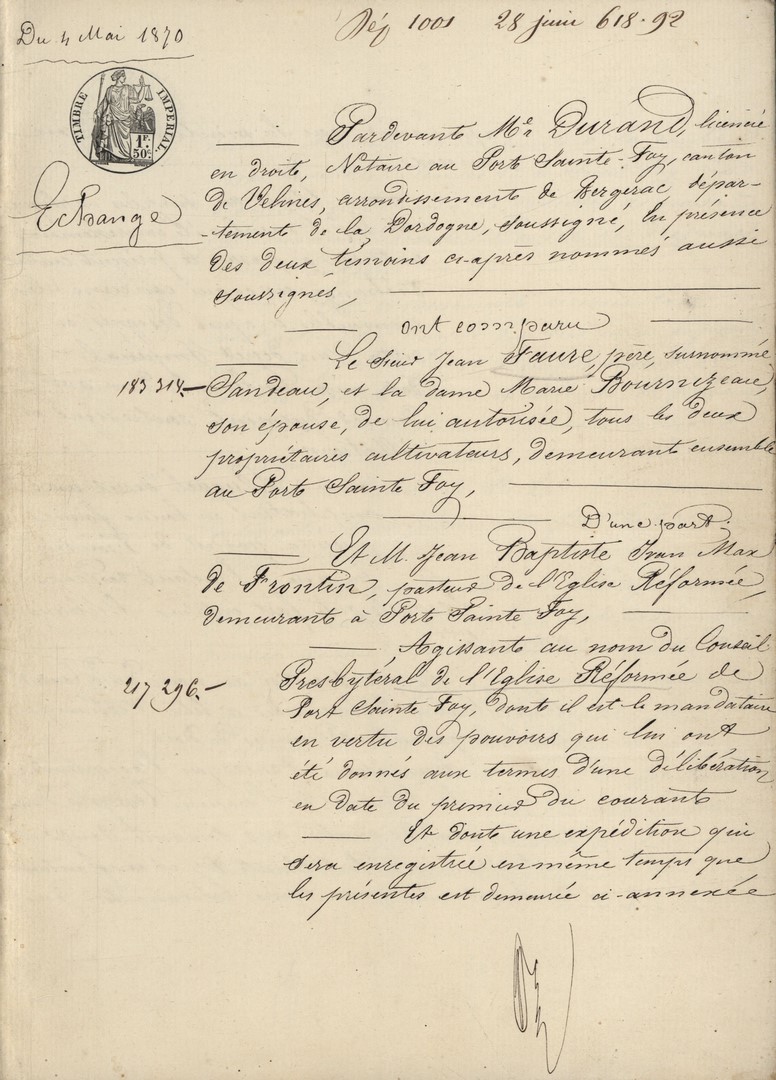 Du 4 Mai 1870
Dép 1001 28 juin 618.92
TIMBRE IMPERIAL.
1F.
50c.
Echange
Pardevant Me Durand, licencié
en droit, Notaire au Port Sainte-Foy, canton
de Velines, arrondissement de Bergerac dépar-
-tement de la Dordogne, soussigné, En présence
des deux témoins ci-après nommés aussi
soussignés,
ont comparu
Le Sieur Jean Faure, père, surnommé
183 314.-
Sandeau, et la dame Marie Bournizeau,
son épouse, de lui autorisée, tous les deux
propriétaires cultivateurs, demeurant ensemble
au Port Sainte Foy,
D'une part.
Et M. Jean Baptiste Ivan Max
de Frontin, pasteur de l'Eglise Réformée,
demeurant à Port Sainte Foy,
Agissant au nom du Conseil
217 296.-
Presbytéral de l'Eglise Réformée de
Port Sainte Foy, dont il est le mandataire
en vertu des pouvoirs qui lui ont
été donnés aux termes d'une délibération
en date du premier du courant
Et dont une expédition qui
sera enregistrée en même temps que
les présentes est demeurée ci-annexée